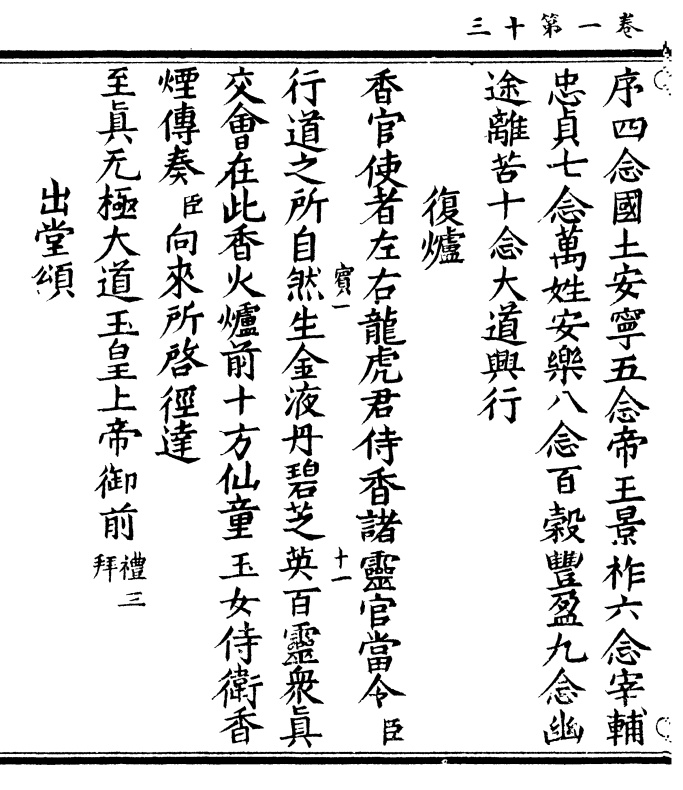 卷一第十三
序四念國土安寧五念帝王景祚六念宰輔
忠貞七念萬姓安樂八念百穀豐盈九念幽
途離苦十念大道興行
復爐
香官使者左右龍虎君侍香諸靈官當令臣
賓一 十一
行道之所自然生金液丹碧芝英百靈衆眞
交會在此香火爐前十方仙童玉女侍衛香
煙傳奏臣向來所啓徑達
至眞无極大道玉皇上帝御前禮三拜
出堂頌